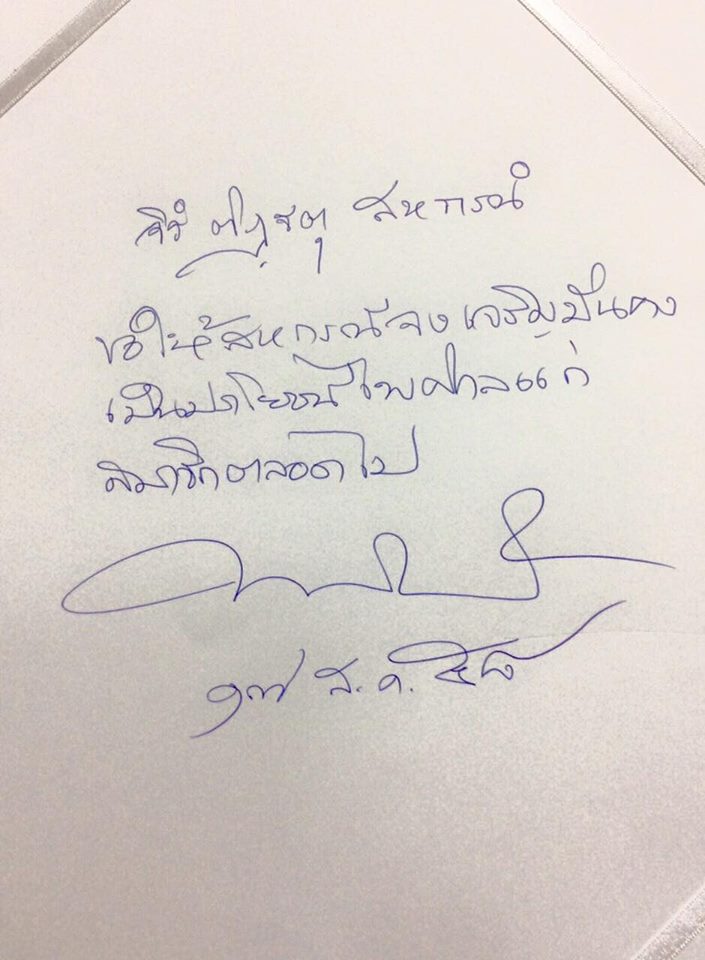 จิรํ ติฏฺฐตุ สหกรณํ
ขอให้สหกรณ์จงเจริญมั่นคง
เป็นประโยชน์ไพศาลแก่
สมาชิกตลอดไป
๑๗ ส.ค. ๕๘